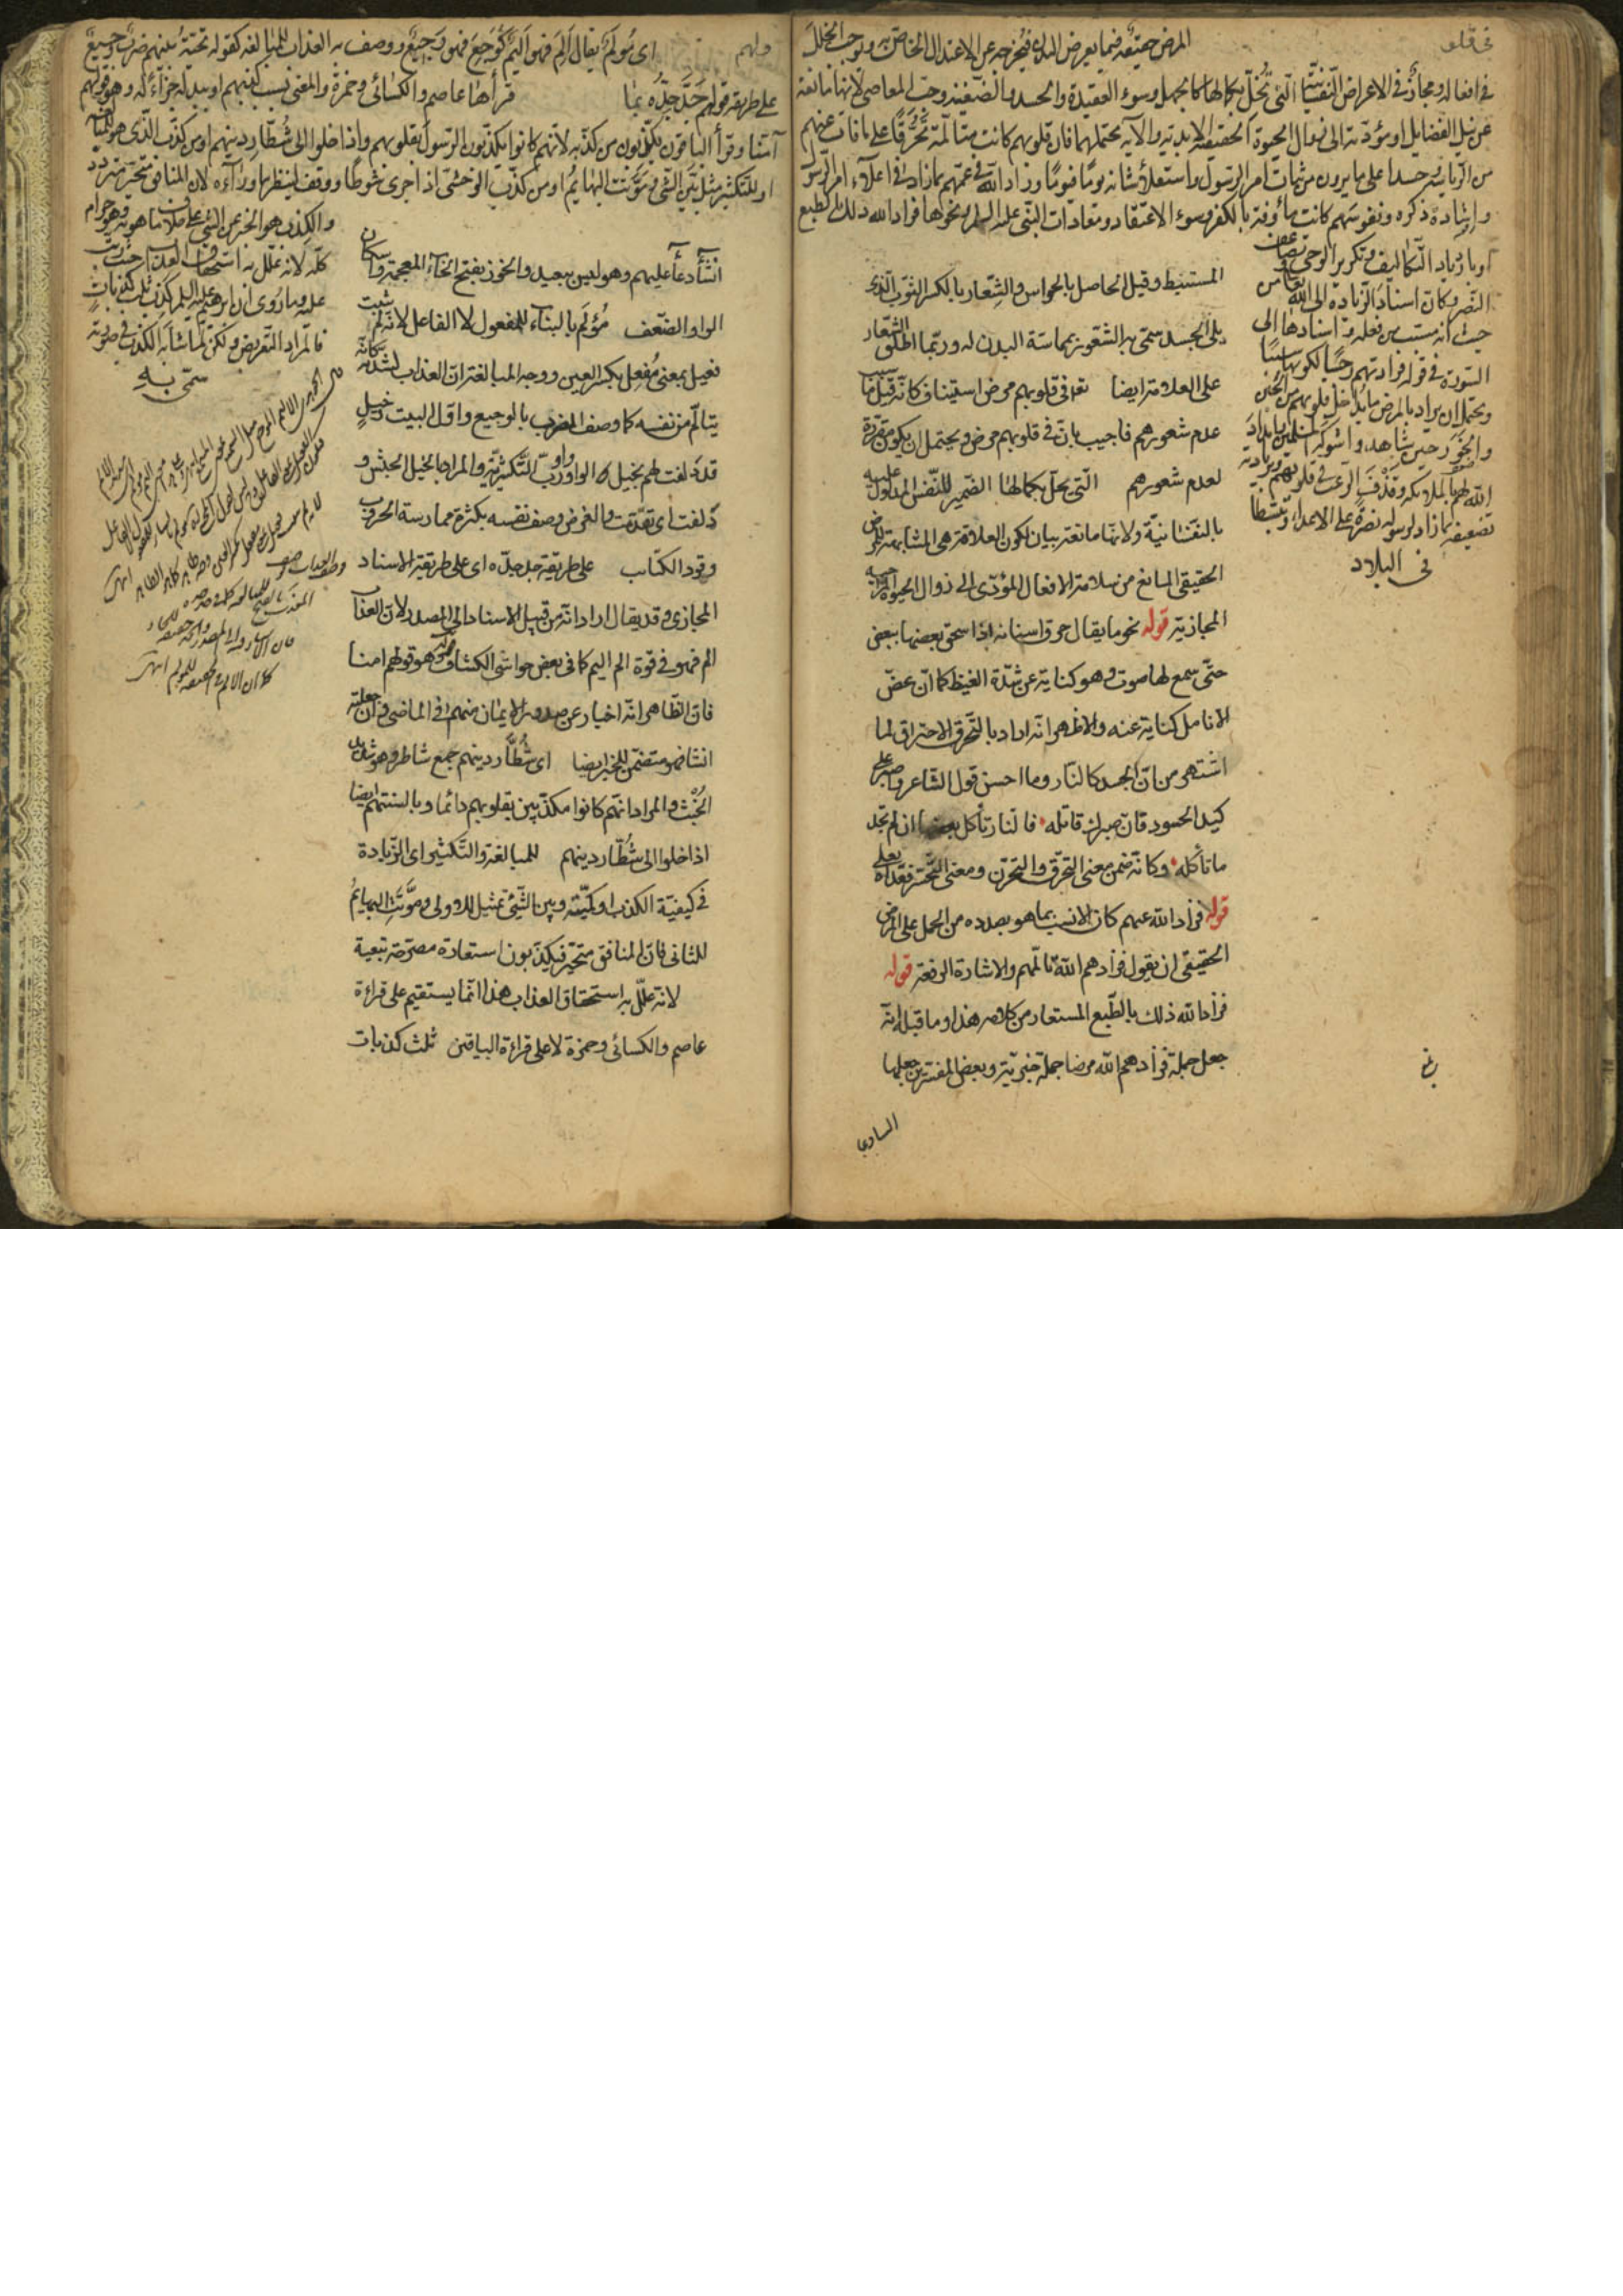 المرض حقيقة فيما يعرض للبدن فيخرجه عن الاعتدال الخاص به ويوجب الخلل
في افعاله ومجاز في الاعراض النفسانية التي تخل بكمالها كالجهل وسوء العقيدة والحسد والضغينة وحب المعاصي لانها مانعة
عن نيل الفضايل او مؤدية الى زوال الحيوة الحقيقية الابدية والآية تحتملهما فان قلوبهم كانت متألمة تحرقا على ما فات عنهم
من الرياسة وحسدا على ما يرون من ثبات امر الرسول واستعلاء شانه يوما فيوما وزاد الله غمهم بما زاد في اعلاء امر الرسول
واشادة ذكره ونفوسهم كانت مأوفة بالكفر وسوء الاعتقاد ومعادات النبي عليه السلم ونحوها فزاد الله ذلك بالطبع
او بازدياد التكاليف وتكرير الوحي وتضاعف
النصر وكان اسناد الزيادة الى الله تعالى من
حيث انه مسبب من فعله و اسنادها الى
السورة في قوله فزادتهم رجسا لكونها سببا
ويحتمل ان يراد بالمرض ما تداخل قلوبهم من الجبن
والخور حين شاهدوا شوكة المسلمين وامداد
الله لهم بالملائكة وقذف الرعب في قلوبهم وبزيادته
تضعيفه بما زاد لرسوله نصرة على الاعداء وتبسطا
في البلاد
المستنبط وقيل الحاصل بالحواس والشعار بالكسر الثوب الذي
يلي الجسد سمي به الشعور بمماسة البدن له وربما اطلق الشعار
على العلامة ايضا في قلوبهم مرض استيناف كانه قيل ما سبب
عدم شعورهم فاجيب بان في قلوبهم مرض ويحتمل ان يكون مقررة
لعدم شعورهم التي تخل بكمالها الضمير للنفس المدلول عليه
بالنفسانية ولانها مانعة بيان لكون العلاقة هي المشابهة للمرض
الحقيقي المانع من سلامة الافعال المؤدي الى زوال الحيوة
المجازية قوله نحو ما يقال حرق اسنانه اذا سحق بعضها ببعض
حتى سمع لها صوت وهو كناية عن شدة الغيظ كما ان عض
الانامل كناية عنه والاظهر انه اراد بالتحرق الاحتراق لما
اشتهر من ان الحسد كالنار وما احسن قول الشاعر واصبر على
كيد الحسود فان صبرك قاتله فالنار تأكل بعضها ان لم تجد
ما تأكله وكانه ضمن معنى التحرق والتحزن ومعنى التحسر فعداه بعلى
قوله فزاد الله غمهم كان الانسب بما هو بصدده من الحمل على المرض
الحقيقي ان يقول فزادهم الله تألمهم والاشادة الرفعة قوله
فزاد الله ذلك بالطبع المستعار من كلامه هذا وما قبله انه
جعل جملة فزادهم الله مرضا جملة خبرية وبعض المفسرين جعلها
ولهم اي مؤلم يقال ألم فهو أليم كوجع فهو وجيع ووصف به العذاب للمبالغة كقوله تحية بينهم ضرب وجيع
على طريقة قولهم جد جده بما قرأها عاصم والكسائي وحمزة والمعنى بسبب كذبهم او ببدله جزاء له وهو قولهم
آمنا وقرأ الباقون يكذبون من كذبه لانهم كانوا يكذبون الرسول بقلوبهم واذا خلوا الى شطار دينهم او من كذب الذي هو للمبالغة
او للتكثير مثل بين الشي وموتت البهايم او من كذب الوحشي اذا جرى شوطا ووقف لينظر ما وراءه لان المنافق متحير متردد
والكذب هو الخبر عن الشي على خلاف ما هو به وهو حرام
كله لانه علل به استحقاق العذاب حيث رتب
عليه وما روي ان ابرهيم عليه السلم كذب ثلث كذبات
فالمراد التعريض ولكن لما شابه الكذب في صورته
سمي به
انشأ دعاء عليهم وهو ليس ببعيد والخور بفتح الخاء المعجمة واسكان
الواو الضعف مؤلم بالبناء للمفعول لا الفاعل لانه لم يثبت
فعيل بمعنى مفعل بكسر العين ووجه المبالغة ان العذاب لشدته كانه
يتألم من نفسه كما وصف الضرب بالوجيع واول البيت وخيل
قد دلفت لهم بخيل الواو واو رب التكثيرية والمراد بالخيل الجيش و
دلفت اي تقدمت والغرض وصف نفسه بكثرة ممارسة الحروب
وقود الكتايب على طريقة جد جده اي على طريقة الاسناد
المجازي وقد يقال اراد انه من قبيل الاسناد الى المصدر لان العذاب
الم فهو في قوة الم اليم كما في بعض حواشي الكشاف قوله وهو قولهم امنا
فان الظاهر انه اخبار عن صدور الايمان منهم في الماضي وان جعلته
انشاء فهو متضمن للخبر ايضا اي شطار دينهم جمع شاطر وهو شديد
الخبث والمراد انهم كانوا مكذبين بقلوبهم دائما وبالسنتهم ايضا
اذا خلوا الى شطار دينهم للمبالغة والتكثير اي الزيادة
في كيفية الكذب او كميته وبين الشيء تمثيل للاولى وموتت البهايم
للثاني فان المنافق متحير فيكذبون استعارة مصرحة تبعية
لانه علل به استحقاق العذاب هذا انما يستقيم على قراءة
عاصم والكسائي وحمزة لا على قراءة الباقين ثلث كذبات